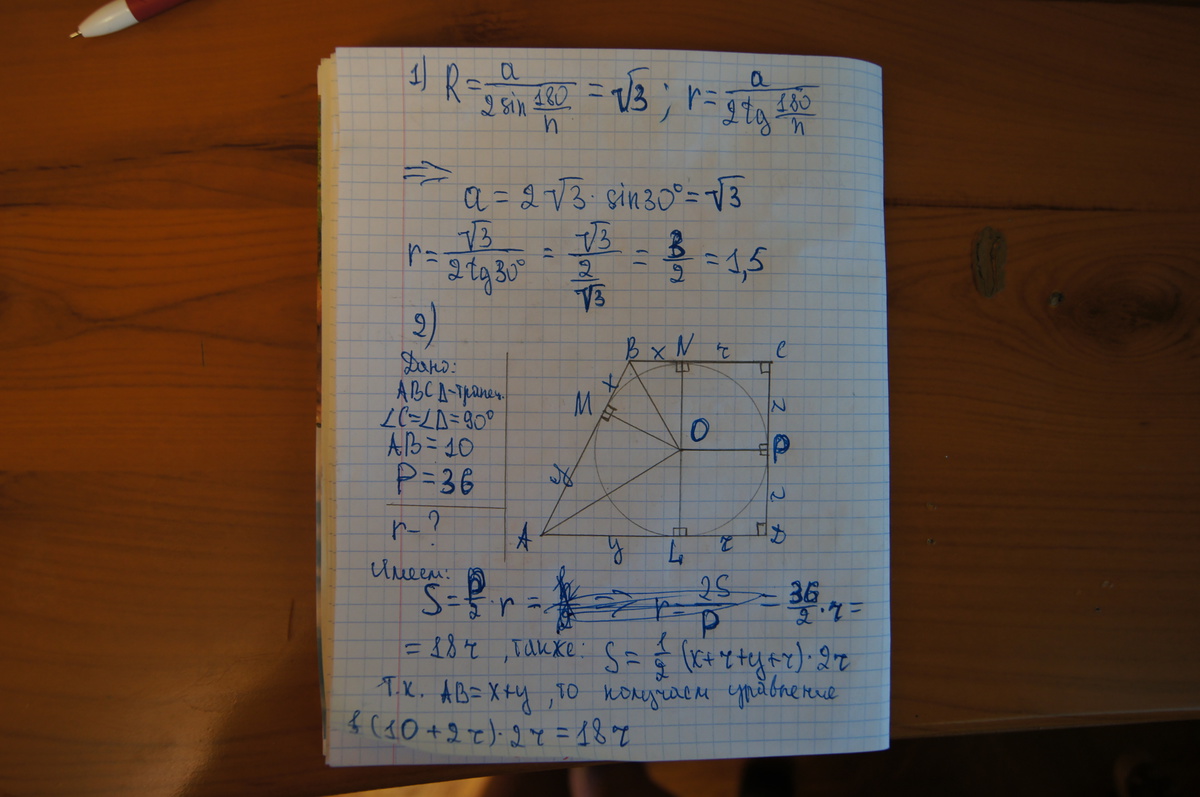 1) R = a / (2 sin 180/n) = √3 ; r = a / (2 tg 180/n)
⇒
a = 2√3 · sin30° = √3
r = √3 / (2 tg30°) = √3 / (2/√3) = 3/2 = 1,5
2)
Дано:
ABCD-трапец.
∠C=∠D=90°
AB = 10
P = 36
r - ?
B x N r C
x
M
r
O
P
y
r
A y L r D
Имеем:
S = P/2 · r = r = 2S/P = 36/2 · r =
= 18r , также: S = 1/2 (x+r+y+r) · 2r
Т.к. AB = x+y , то получаем уравнение
(10 + 2r) · 2r = 18r